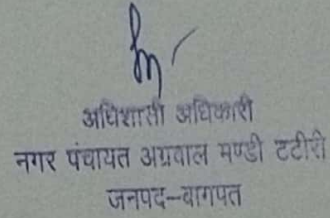 अधिशासी अधिकारी
नगर पंचायत अग्रवाल मण्डी टटीरी
जनपद–बागपत